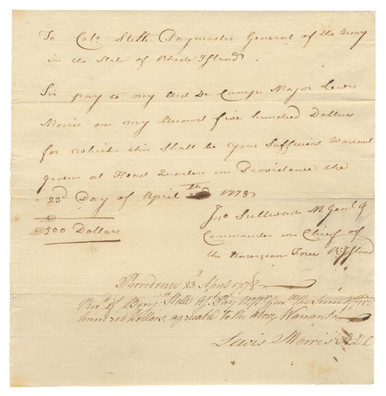 To Colo Stelle Paymaster General of the Army
in the State of Rhode Island
Sir pay to my Aid De Camp Major Lewis
Morris on my Account five hundred Dollars
for which this Shall be your Sufficient Warrant
given at Head Quarters in Providence the
23d Day of April 1778
500 Dollars
Jno Sullivan M Genl &
Commander in Chief of
the American Force R Island
Providence 23d April 1778
Recd of Benjn Stelle Dy Pay Mastr Genl the Sum of five
hundred dollars, agreeable to the above Warrant
Lewis Morris